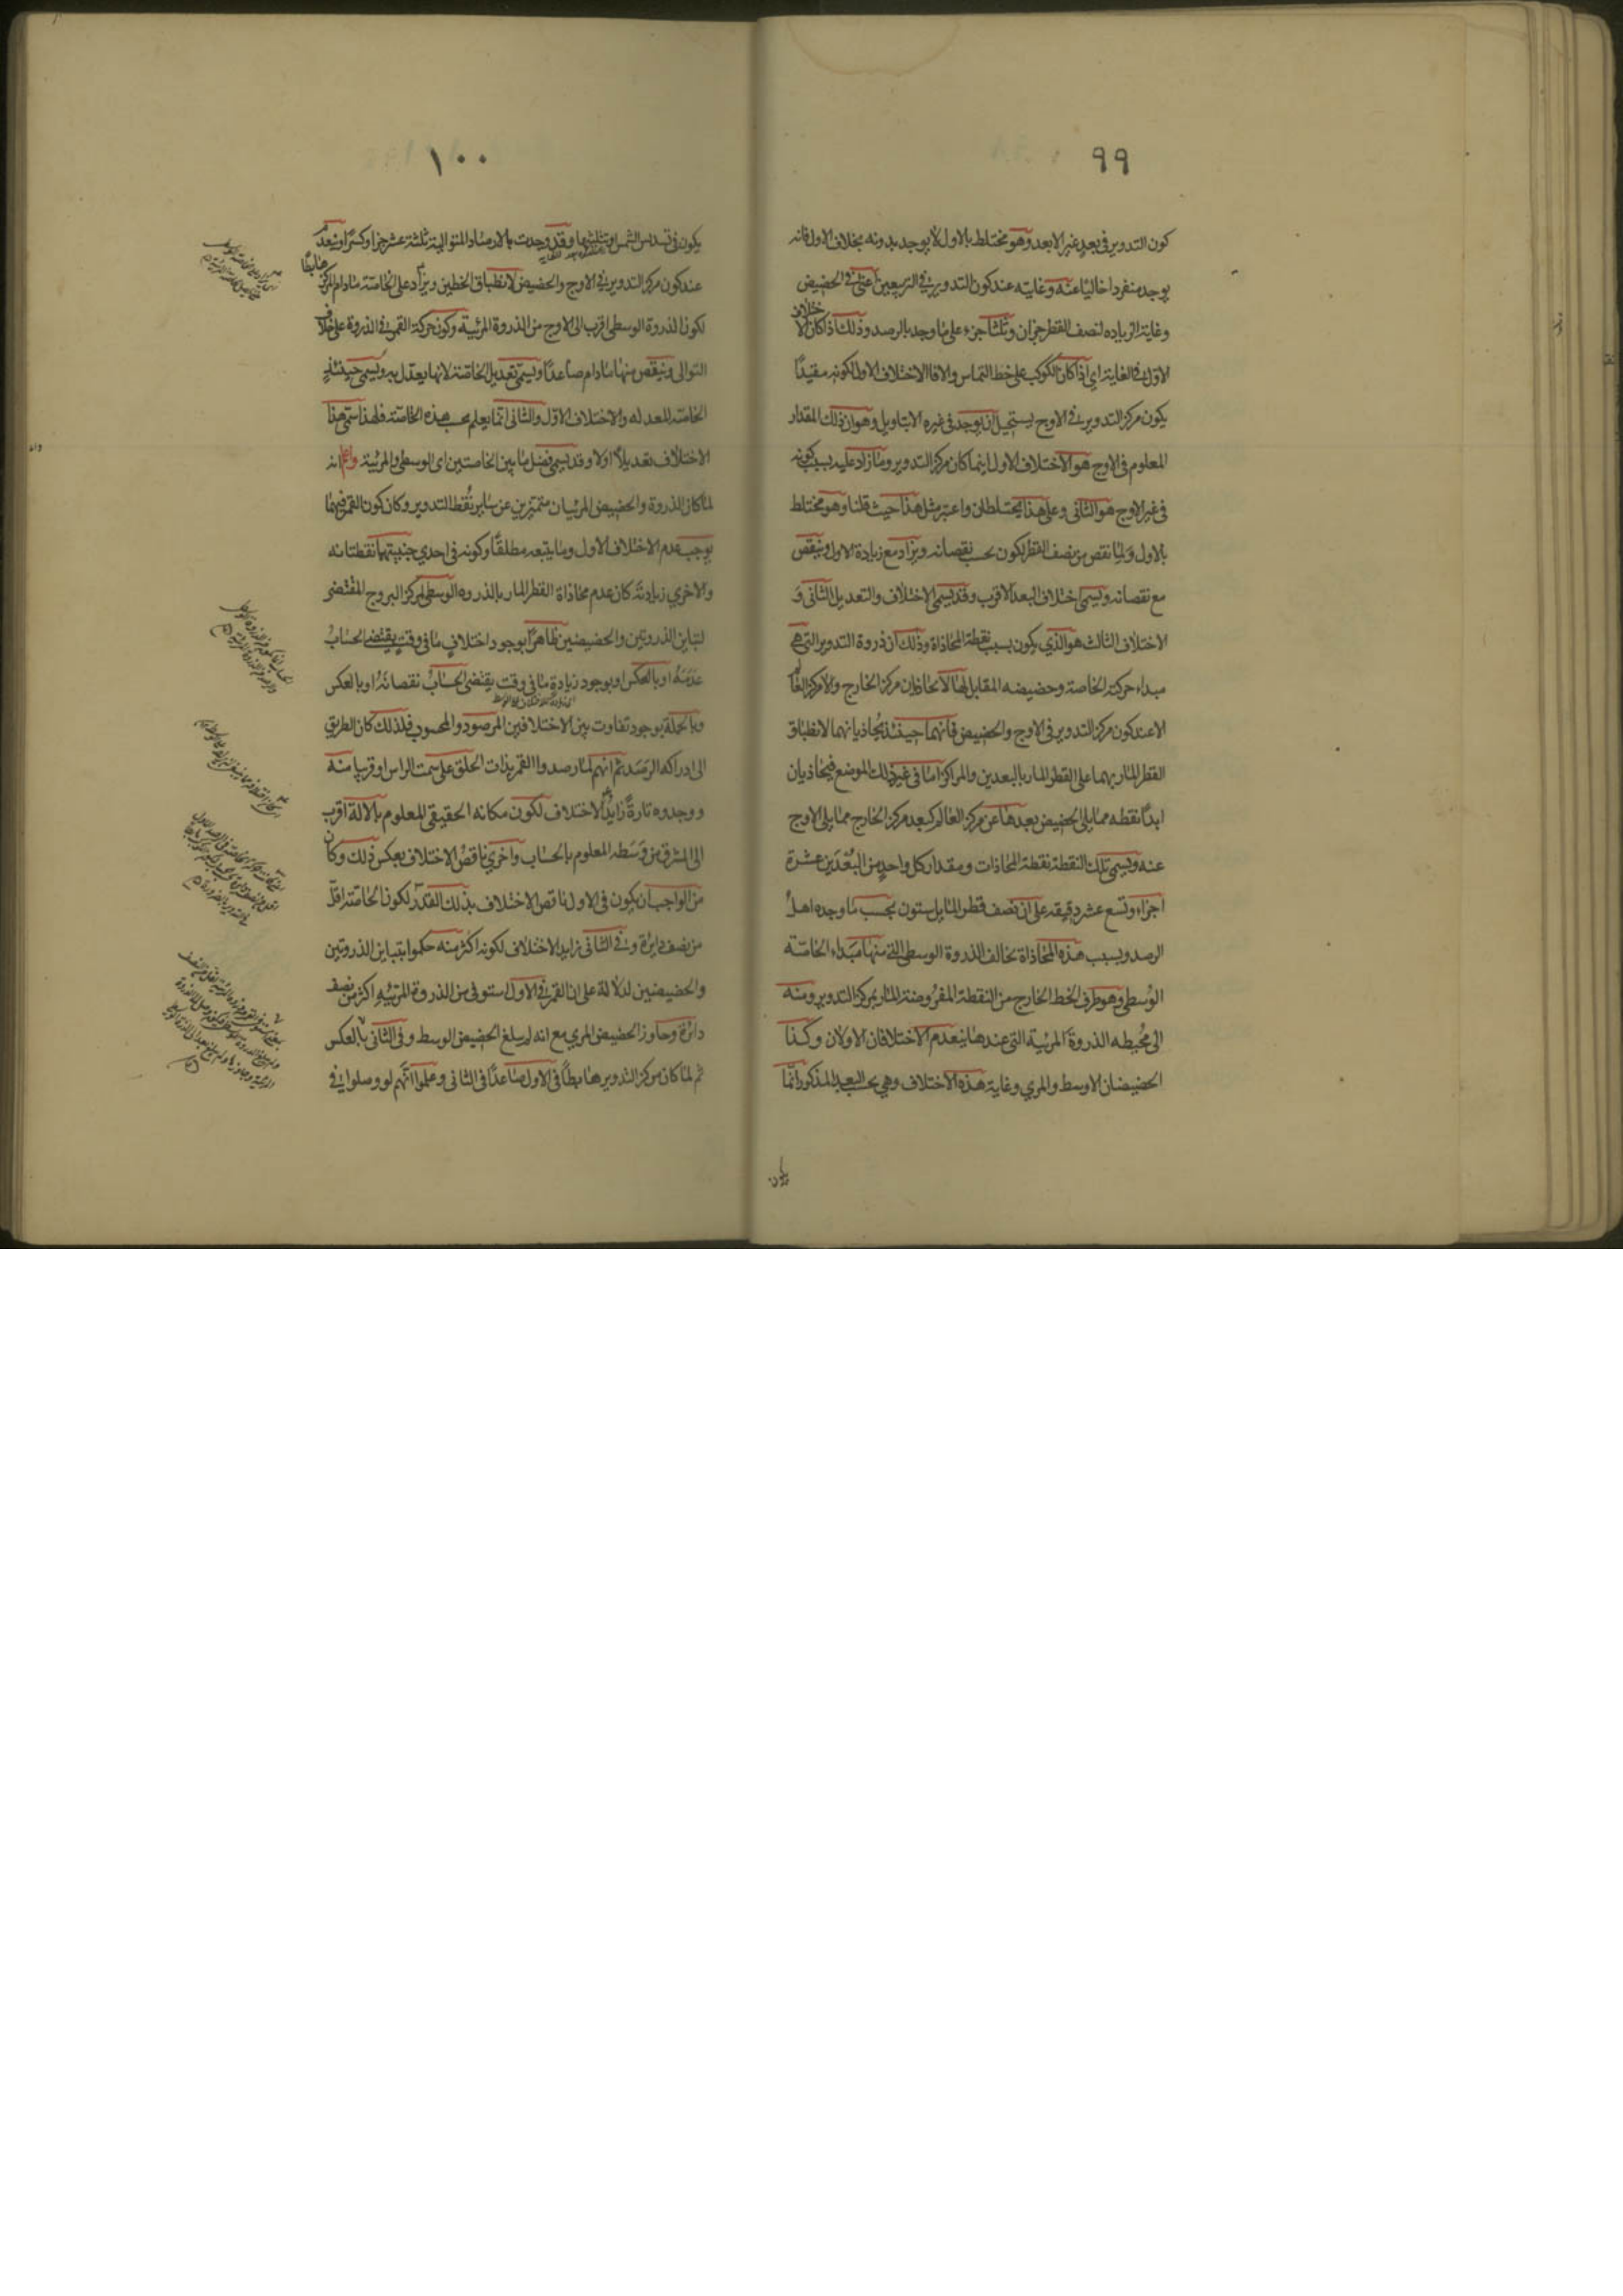 ٩٩
كون التدوير في بعد غير الابعد وهو مختلط بالاول لا يوجد بدونه بخلاف الاول فانه
يوجد منفردا خاليا عنه وغايته عند كون التدوير في التربيعين اعني في الحضيض
وغاية الزيادة لنصف القطر جزان وثلثا جزء على ما وجد بالرصد وذلك اذا كان الاختلاف
الاول في الغاية اي اذا كان الكوكب على خط التماس والا فالاختلاف الاول لكونه مقيدا
يكون مركز التدوير في الاوج يستحيل ان يوجد في غيره الا بتاويل وهو ان ذلك المقدار
المعلوم في الاوج هو الاختلاف الاول اينما كان مركز التدوير وما زاد عليه بسبب كونه
في غير الاوج هو الثاني وعلى هذا يختلطان واعتبر مثل هذا حيث قلنا وهو مختلط
بالاول ولما نقص من نصف القطر يكون بحسب نقصانه ويزاد مع زيادة الاول وينقص
مع نقصانه ويسمى اختلاف البعد الاقرب وقد يسمى الاختلاف والتعديل الثاني و
الاختلاف الثالث هو الذي يكون بسبب نقطة المحاذاة وذلك ان ذروة التدوير التي هي
مبداء حركة الخاصة وحضيضه المقابل لها لا تحاذيان مركز الخارج ولا مركز العالم
الا عند كون مركز التدوير في الاوج والحضيض فانهما حينئذ يحاذيانهما لانطباق
القطر المار بهما على القطر المار بالبعدين والمراكز اما في غير ذلك الموضع فيحاذيان
ابدا نقطه مما يلي الحضيض بعدها عن مركز العالم كبعد مركز الخارج مما يلي الاوج
عنه ويسمى تلك النقطة نقطة المحاذات ومقدار كل واحد من البعدين عشرة
اجزاء وتسع عشر دقيقه على ان نصف قطر المايل ستون بحسب ما وجده اهل
الرصد وبسبب هذه المحاذاة تخالف الذروة الوسطى التي منها مبداء الخاصة
الوسطى وهو طرف الخط الخارج من النقطة المفروضة المار بمركز التدوير ومنه
الى محيطه الذروة المرئية التي عندها ينعدم الاختلافان الاولان وكذا
الحضيضان الاوسط والمري وغاية هذه الاختلاف وهي بحسب البعد المذكور انما
يكون
١٠٠
يكون في تسديس الشمس وتثليثها وقد وجدت بالارصاد المتوالية ثلثة عشر جزا وكسرا وينعدم
عند كون مركز التدوير في الاوج والحضيض لانطباق الخطين ويزاد على الخاصة مادام المركز هابطا
لكون الذروة الوسطى اقرب الى الاوج من الذروة المرئية وكون حركة القمر في الذروة على خلاف
التوالي وينقص منها مادام صاعدا ويسمى تعديل الخاصة لانها يعتدل به ويسمى حينئذ
الخاصة المعدله والاختلاف الاول والثاني انما يعلم بحسب هذه الخاصة فلهذا سمي هذا
الاختلاف تعديلا اولا وقد يسمى فضل ما بين الخاصتين اى الوسطى والمرئية واعلم انه
لما كان الذروة والحضيض المرئيان متميزين عن ساير نقط التدوير وكان كون القمر فيهما
يوجب عدم الاختلاف الاول وما يتبعه مطلقا وكونه في احدي جنبيتهما نقصانه
والاخري زيادته كان عدم محاذاة القطر المار بالذروه الوسطى لمركز البروج المقتضى
لتباين الذروتين والحضيضين ظاهرا بوجود اختلاف ما في وقت يقتضي الحساب
عدمه او بالعكس او بوجود زيادة ما في وقت يقتضى الحساب نقصانه او بالعكس
وبالجملة بوجود تفاوت بين الاختلافين المرصود والمحسوب فلذلك كان الطريق
الى ادراكه الرصد ثم انهم لما رصدوا القمر بذات الحلق على سمت الراس او قريبا منه
ووجدوه تارة زايد الاختلاف لكون مكانه الحقيقي المعلوم بالالة اقرب
الى المشرق من وسطه المعلوم بالحساب واخري ناقص الاختلاف بعكس ذلك وكان
من الواجب ان يكون في الاول ناقص الاختلاف بذلك القدر لكون الخاصة اقل
من نصف دايرة وفي الثاني زايد الاختلاف لكونه اكثر منه حكموا بتباين الذروتين
والحضيضين لدلالة على ان القمر في الاول استوفى من الذروة المرئيه اكثر من نصف
دائرة وجاوز الحضيض المري مع انه لم يبلغ الحضيض الوسط وفي الثاني بالعكس
ثم لما كان مركز التدوير هابطا في الاول صاعدا في الثاني وعلموا انهم لو وصلوا في